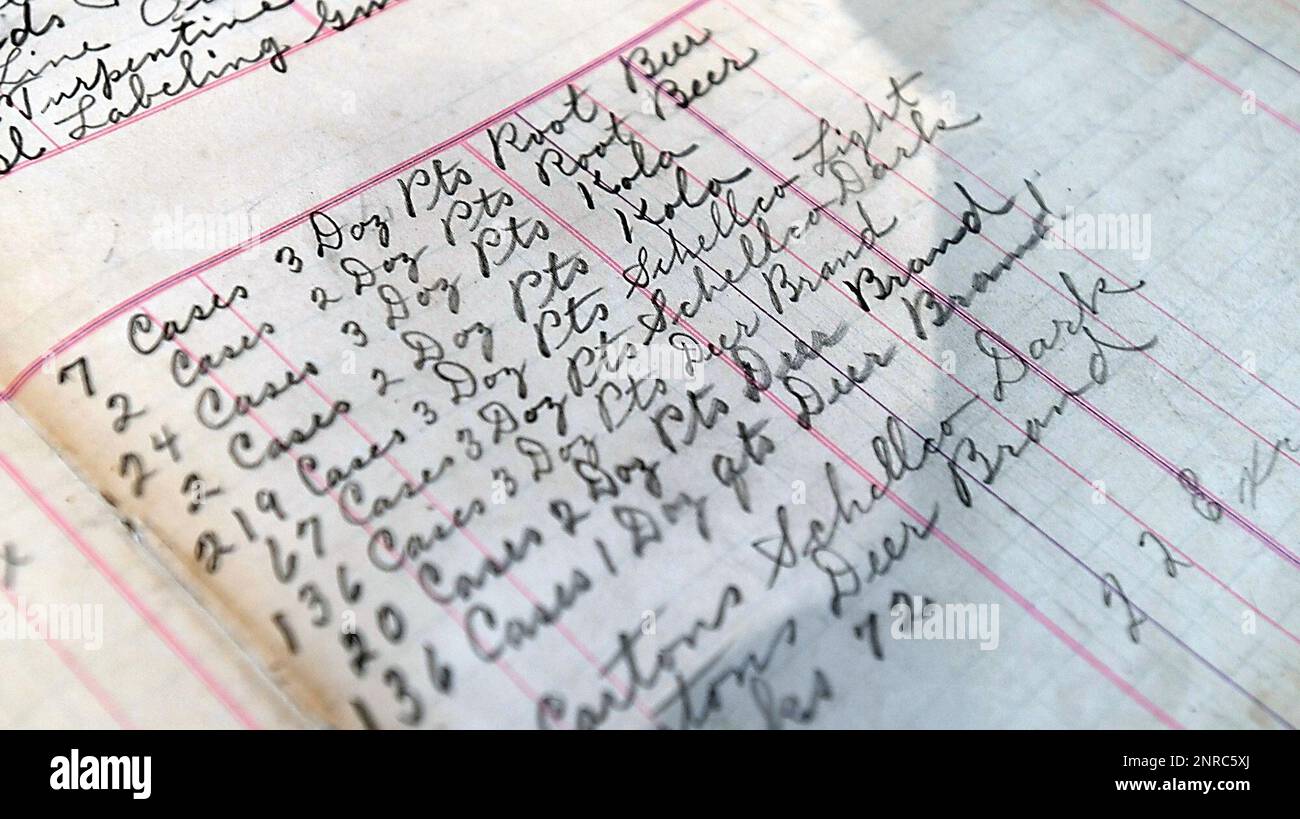 Line
Turpentine
Labeling
7 Cases 3 Doz Pts Root Beer
2 Cases 2 Doz Pts Root Beer
24 Cases 3 Doz Pts Kola
2 Cases 2 Doz Pts Kola
219 Cases 3 Doz Pts Schellco Light
67 Cases 3 Doz Pts Schellco Dark
136 Cases 3 Doz Pts Deer Brand
20 Cases 2 Doz Pts Deer Brand
136 Cases 1 Doz qts Deer Brand
Cartons Schellco Dark
tons Deer Brand
ks 72
2 2
alamy
Image ID: 2NRC5XJ
www.alamy.com